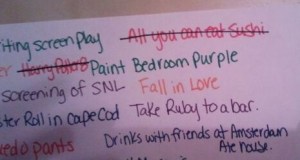 iting screen play All you can eat Sushi
er Harry Potter 8 Paint Bedroom Purple
screening of SNL Fall in Love
ster Roll in Cape Cod Take Ruby to a bar.
edo pants Drinks with friends at Amsterdam
Ale house.